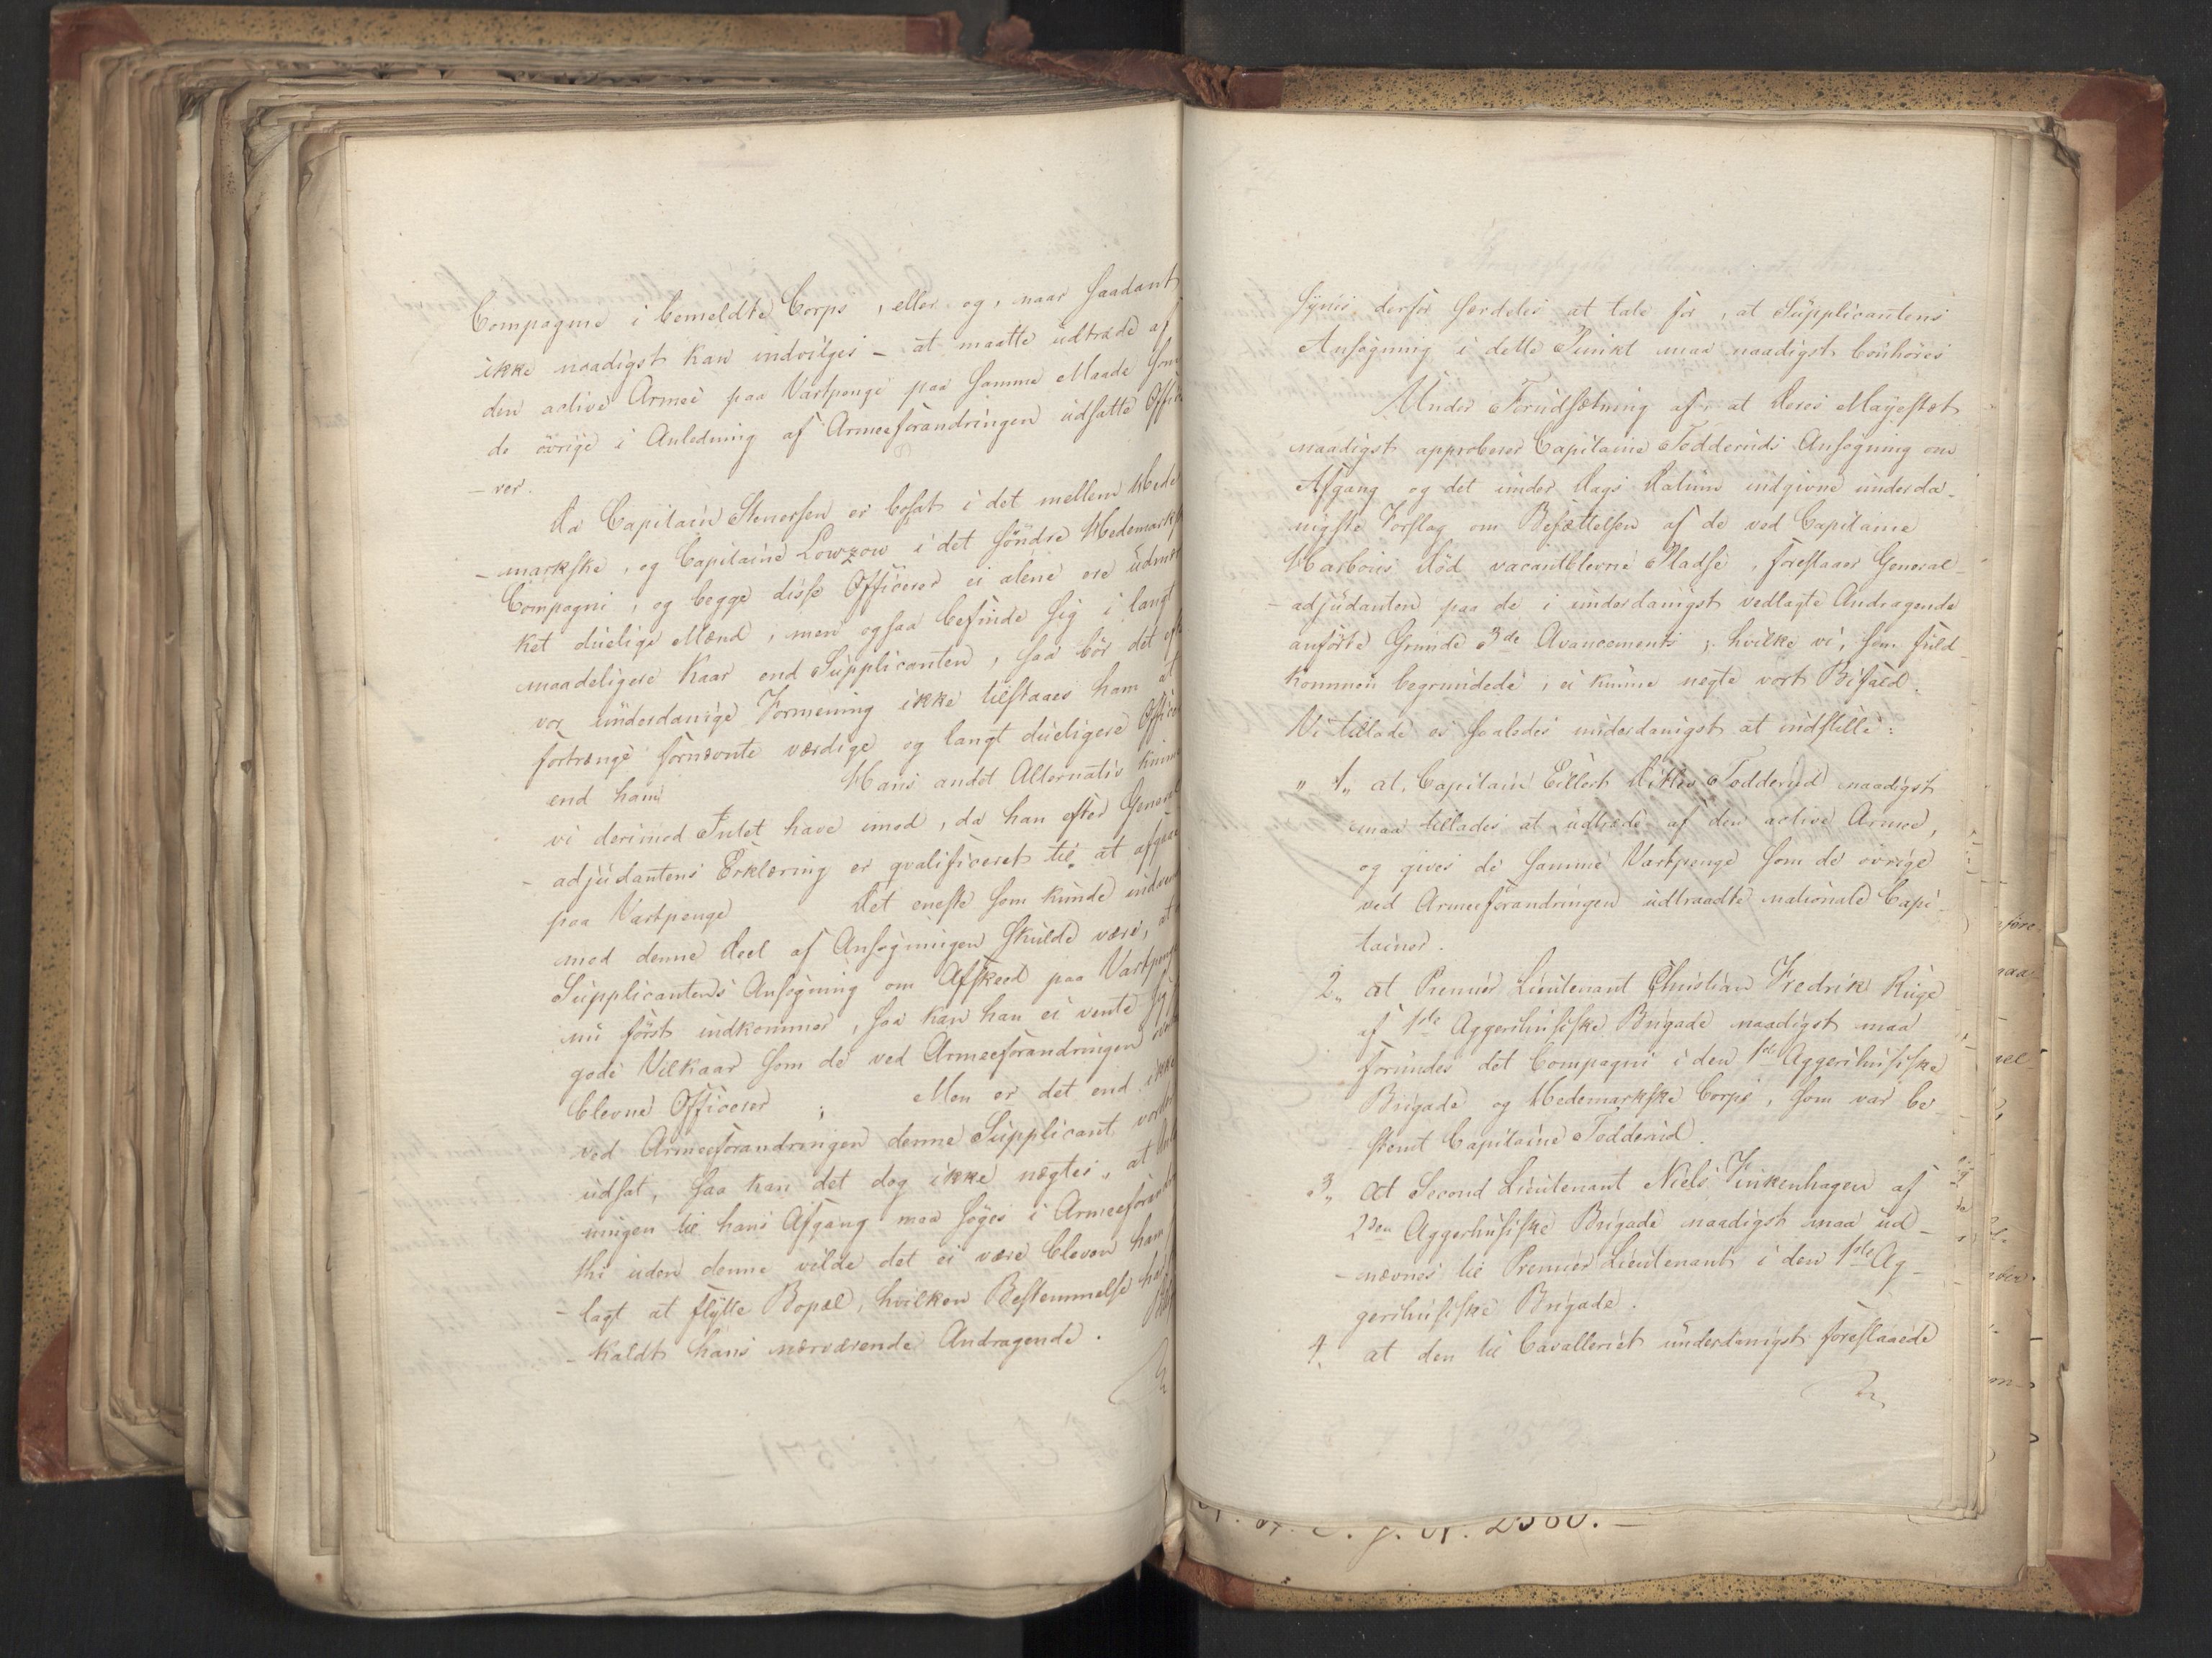 Compagnie i bemeldte Corps, eller og, naar saadant
ikke naadigst kan indvilges – at maatte udtræde af
den active Armee paa Vartpenge paa samme Maade som
de övrige i Anledning af Armeeforandringen udsatte Offici-
-rer.
Da Capitain Stenersen er bosat i det mellem Hede-
-markske, og Capitaine Lowzow i det söndre Hedemarkske
Compagni, og begge disse Officerer ei alene ere udmær
ket duelige Mænd, men ogsaa befinde sig i langt
maadeligere Kaar end Supplicanten, saa bör det efter
vor underdanige Formening ikke tilstaaes ham at
fortrænge fornævnte værdige og langt dueligere Officerer
end ham Hans andet Alternativ kunne
vi derimod Intet have imod, da han efter General
- adjudantens Erklæring er qvalificeret til at afgaae
paa Vartpenge Det eneste som kunde indvendes
mod denne Deel af Ansøgningen skulde være, at
Supplicantens Ansøgning om Afskeed paa Vartpenge
nu först indkommer, saa kan han ei vente sig
gode Vilkaar som de ved Armeeforandringen
blevne Officerer ; Men er det end ikke
ved Armeeforandringen denne Supplicant
udsat, saa kan det dog ikke nægtes, at Anled
ningen til hans Afgang maa søges i Armeeforandr
thi uden denne vilde det ei være bleven ham
- lagt at flytte Bopæl, hvilken Bestemmelse har
- kaldt hans nærværende Andragende.
synes derfor særdeles at tale for, at Supplicantens
Ansøgning i dette Punkt maa naadigst bönhöres
Under Forudsætning af, at Deres Mayestæt
naadigst approberer Capitaine Todderuds Ansøgning om
Afgang og det under Dags Datum indgivne underda-
nigste Forslag om Besættelsen af de ved Capitaine
Harboes Död vacantblevne Pladse, foreslaaer General-
- adjudanten paa de i underdanigst vedlagte Andragende
anförte Grunde 3de Avancements ; hvilke vi, som fuld-
kommen begrundede, ei kunne negte vort Bifald.
Vi tillade os saaledes underdanigst at indstille:
" 1" at, Capitain Eilert Ditlev Todderud naadigst
maa tillades at udtræde af den active Armee,
og gives de samme Vartpenge som de övrige
ved Armeeforandringen udtraadte nationale Capi-
tainer.
2" at Premier Lieutenant Christian Fredrik Ruge
af 1ste Aggershusiske Brigade naadigst maa
forundes det Compagni i den 1ste Aggershusiske
Brigade og Hedemarkske Corps, som var be-
- stemt Capitaine Todderud.
3" at Second Lieutenant Niels Finkenhagen af
2den Aggershusiske Brigade naadigst maa ud-
- nævnes til Premier Lieutenant i den 1ste Ag-
gershusiske Brigade.
4. at den til Cavalleriet underdanigst foreslaaede